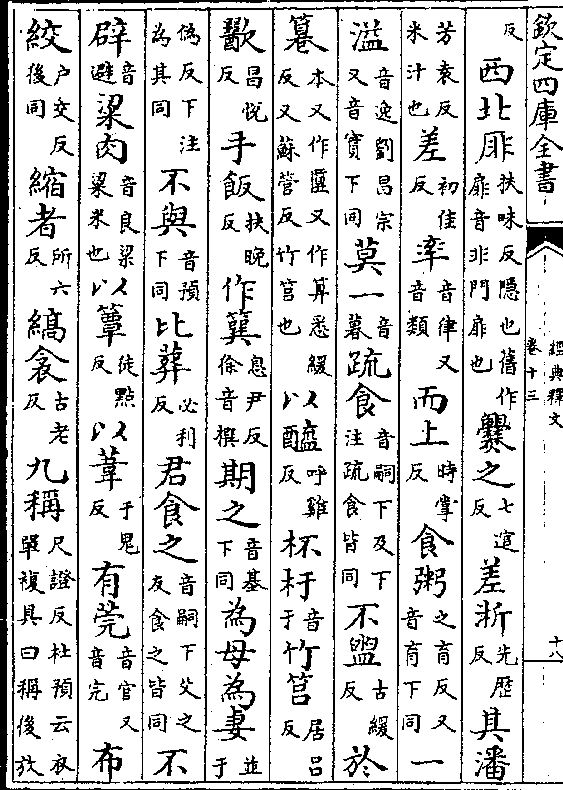 欽定四庫全書
經典釋文
卷十三
十八
反西北厞扶味反隱也舊作扉音非門扉也爨之七逭反差淅先歷反其潘
芳袁反米汁也差初佳反率音律又音類而上時掌反食粥之育反又音育下同一
溢音逸劉昌宗又音實下同莫一音暮疏食音嗣下及下注疏食皆同不盥古緩反於
篹本又作匴又作算悉緩反又蘇管反竹筥也以醯呼雞反杯杅音于竹筥居呂反
歠昌悅反手飯扶晚反作簨息尹反徐音撰期之音基下同為母為妻並于
偽反下注為其同不與音預下同比葬必利反君食之音嗣下父之友食之皆同不
辟音避粱肉音良粱粱米也以簟徒點反以葦于鬼反有莞音官又音完布
絞户交反後同縮者所六反縞衾古老反九稱尺證反杜預云衣單複具曰稱後放